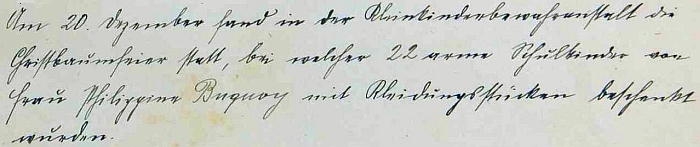 Am 20. Dezember fand in der Kleinkinderbewahranstalt die
Christbaumfeier statt, bei welcher 22 arme Schulkinder von
Frau Philippine Buquoy mit Kleidungsstücken beschenkt
wurden.